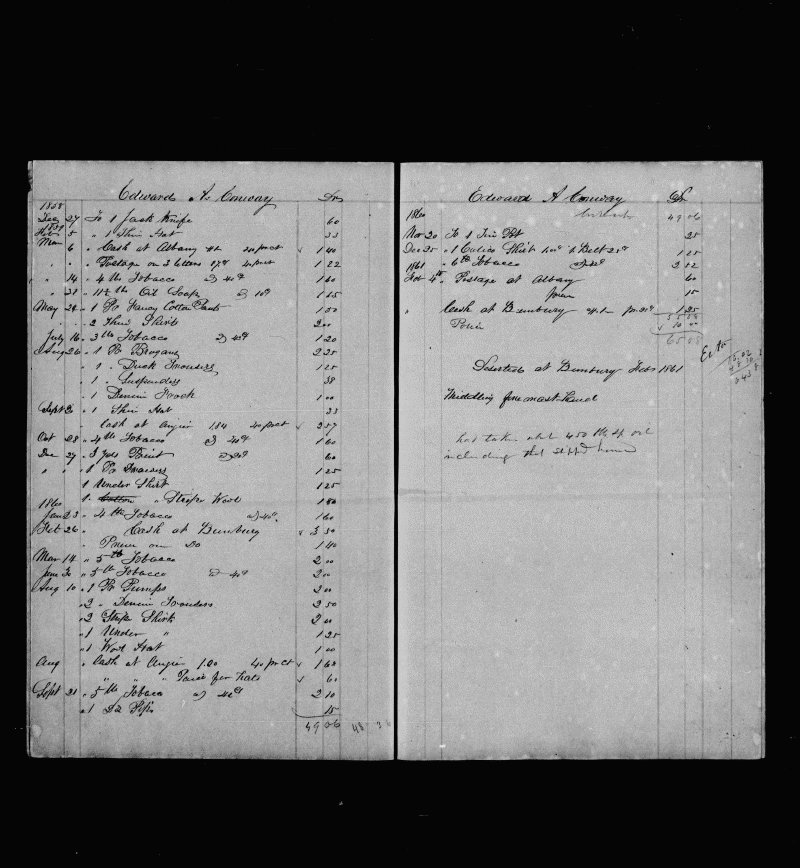 Edward A Conway Drs
1858
Dec 27 To 1 Jack Knife 60
1859
Feb 5 " 1 Thin Hat 33
Mar 6 " Cash at Albany 40 pr ct 1 40
" " Postage on 3 letters 40 pr ct 1 22
" 14 " 4 lbs Tobacco @ 40c 1 60
" 31 " 11½ lbs Oil Soap @ 10c 1 15
May 24 " 1 Pr Fancy Cotton Pants 1 50
" " 2 Thin Shirts 2 00
July 16 " 3 lbs Tobacco @ 40c 1 20
Aug 26 " 1 Pr Brogans 2 25
" 1 " Duck Trousers 1 25
" 1 " Suspenders 38
" 1 Denim Frock 1 00
Sept 2 " 1 Thin Hat 33
" Cash at Angier 1.84 40 pr ct 2 57
Oct 28 " 4 lbs Tobacco @ 40c 1 60
Dec 27 " 3 yds Print @ 20c 60
" " 1 Pr Trousers 1 25
1 Under Shirt 1 25
1 Cotton " Striped Wool 1 50
1860
Jan 23 " 4 lbs Tobacco @ 40c 1 60
Feb 26 " Cash at Bunbury 3 50
" on Do 1 40
Mar 14 " 5 lb Tobacco 2 00
June 30 " 5 lb Tobacco @ 40c 2 00
Aug 10 " 1 Pr Pumps 2 00
" 2 " Denim Trousers 2 50
" 2 Stripe Shirts 2 00
" 1 Under " 1 25
" 1 Wool Hat 1 00
Aug " Cash at Angier 1.00 40 pr ct 1 60
" " " for hats 60
Sept 21 " 5 lbs Tobacco @ 42c 2 10
" 1 Dz Pipes 15
49 06
Edward A Conway Cr
1860
49 06
Nov 20 To 1 Tin Pot 25
Dec 25 " 1 Calico Shirt 1.00 1 Belt 25c 1 25
1861 " 6 lb Tobacco @ 42c 2 52
Feb 4th " Postage at Albany 60
15
" Cash at Bunbury 1 25
10 00
65 08
Deserted at Bunbury Feb 1861
Middling foremast Hand
has taken abt 450 lbs sp oil
including that shipped home